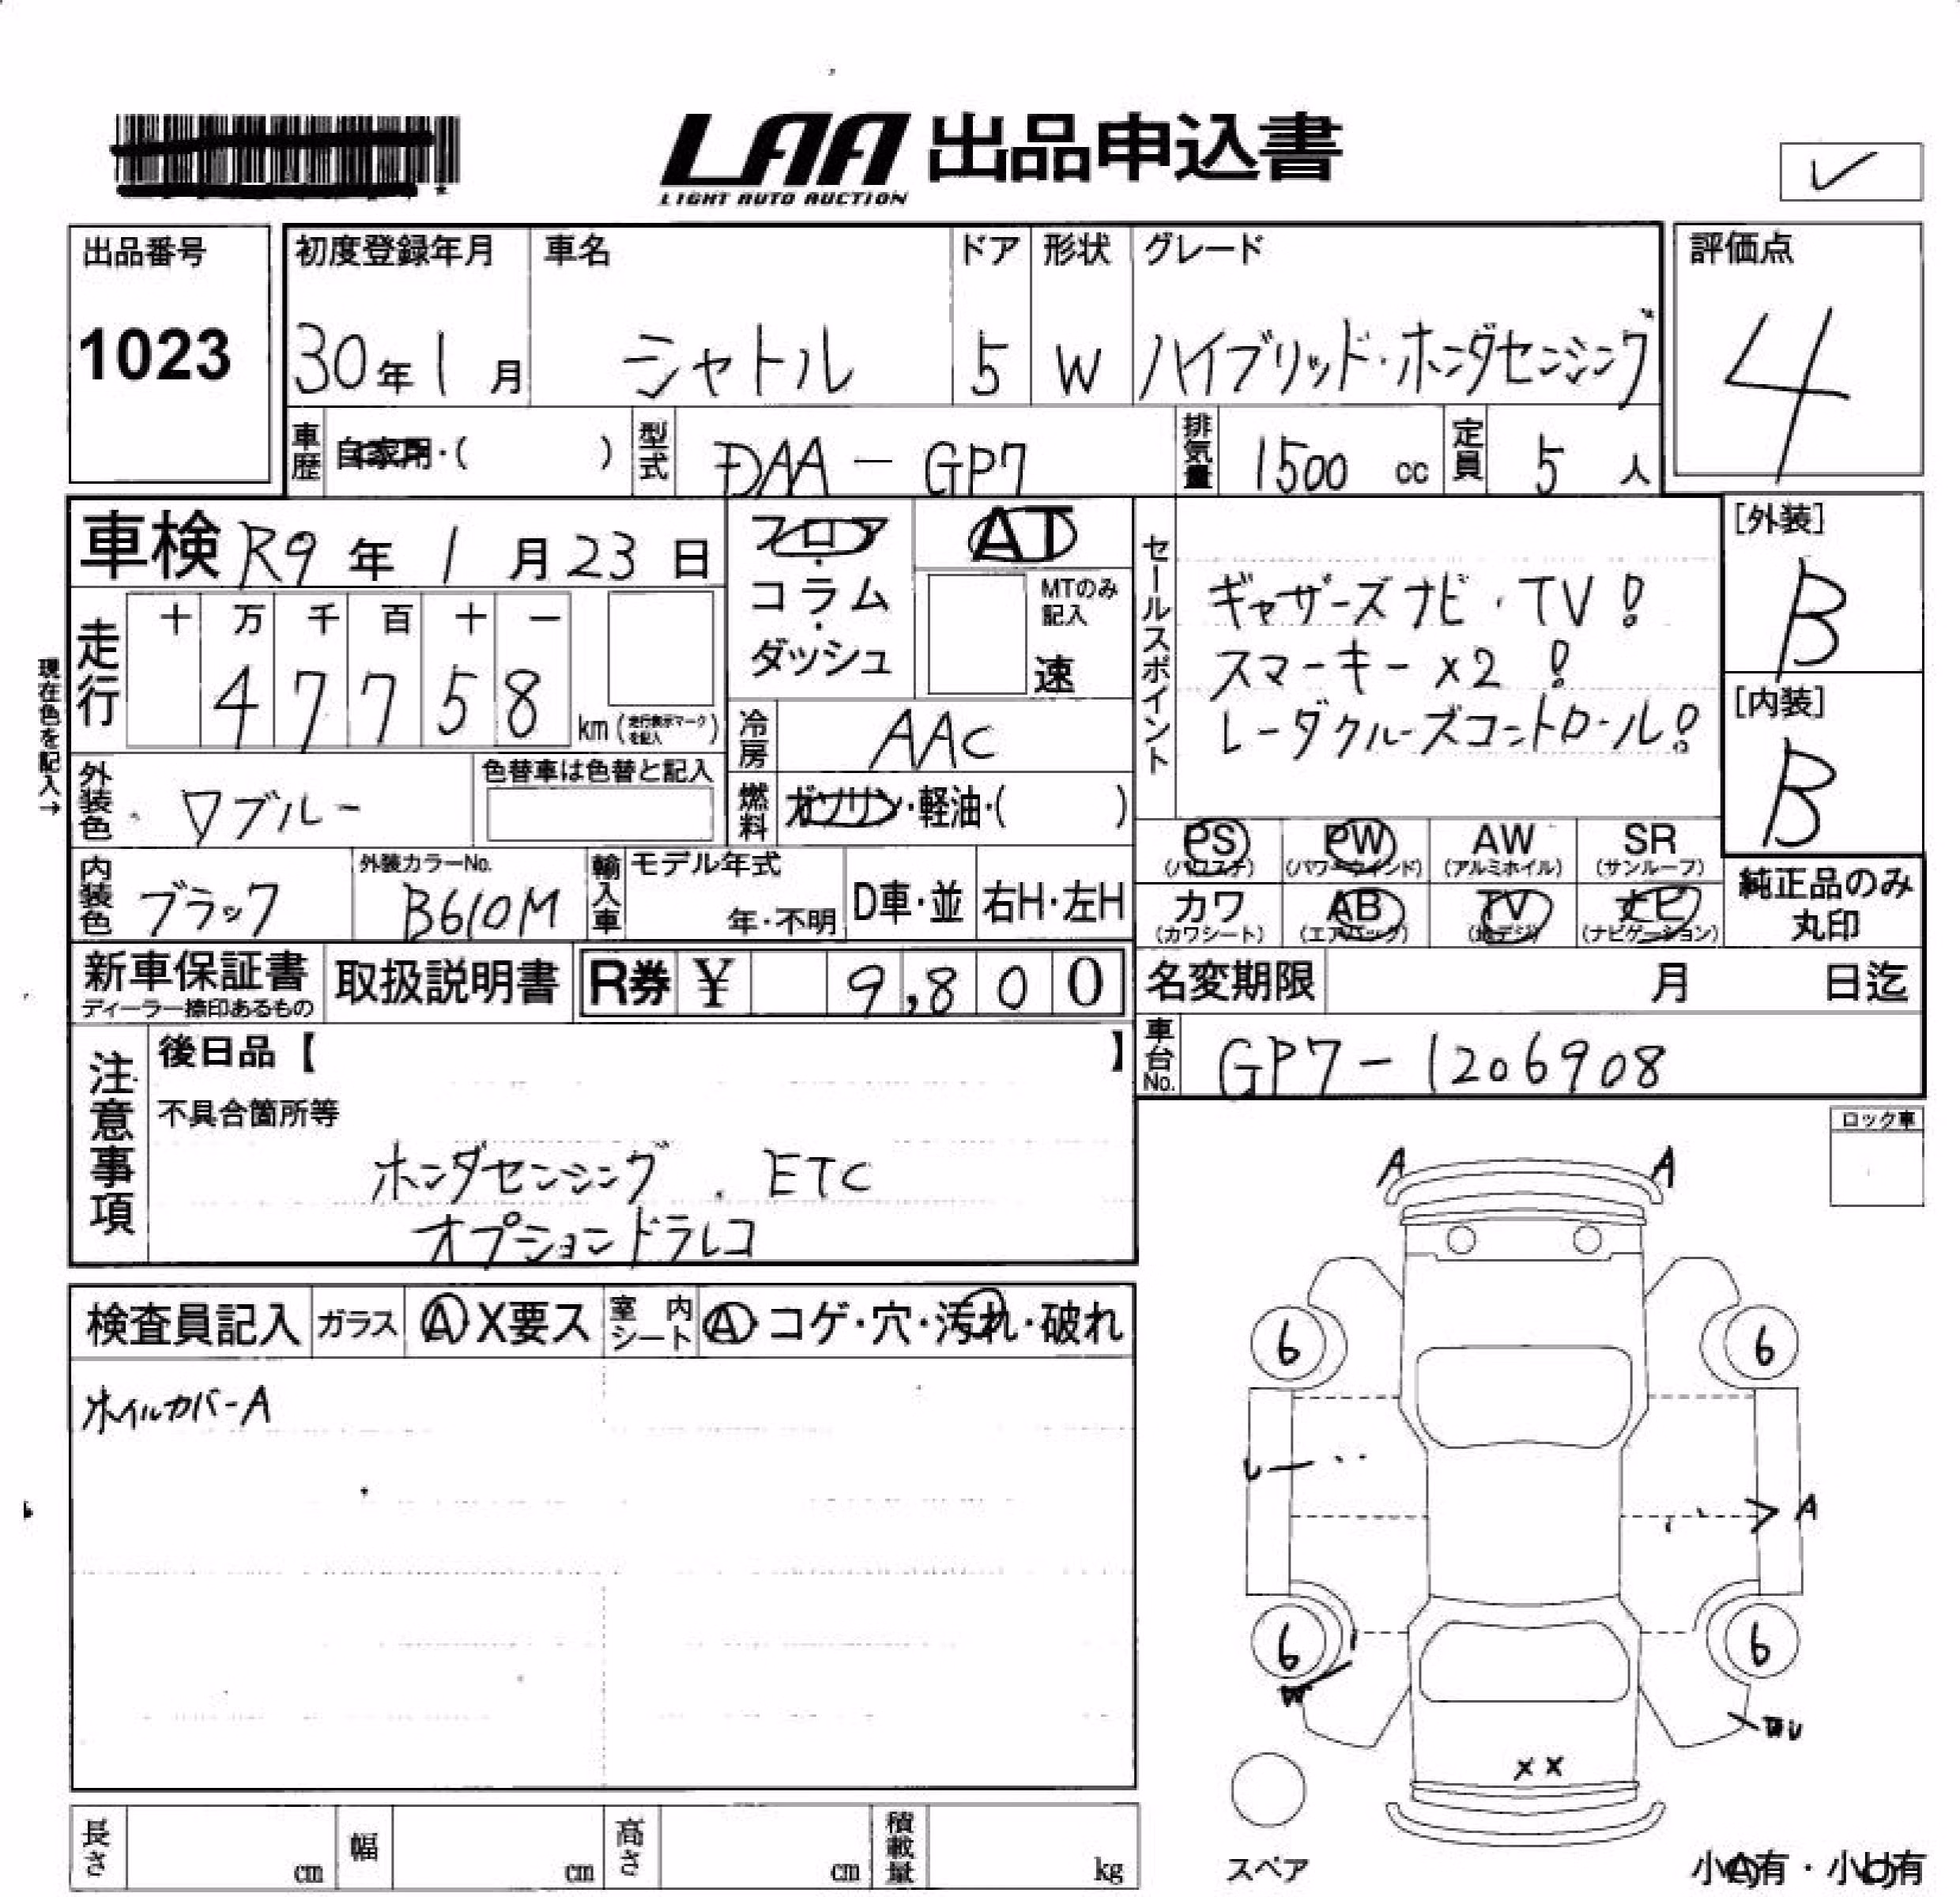 LAA 出品申込書
LIGHT AUTO AUCTION
出品番号
1023
初度登録年月
30年1月
車名
シャトル
ドア
5
形状
W
グレード
ハイブリッド・ホンダセンシング
評価点
4
車歴
自家用・( )
型式
DAA-GP7
排気量
1500 cc
定員
5 人
車検 R9年1月23日
フロア・コラム・ダッシュ
AT
MTのみ記入
速
現在色を記入→
走行
十万千百十一
47758
km(走行表示マークを記入)
冷房
AAC
外装色
ブルー
色替車は色替と記入
燃料
ガソリン・軽油・( )
セールスポイント
ギャザーズナビ・TV!
スマーキー x2 !
レーダクルーズコントロール!
[外装]
B
[内装]
B
PS
(パワステ)
PW
(パワーウインド)
AW
(アルミホイル)
SR
(サンルーフ)
カワ
(カワシート)
AB
(エアバック)
TV
(地デジ)
ナビ
(ナビゲーション)
純正品のみ
丸印
内装色
ブラック
外装カラーNo.
B610M
輸入車
モデル年式
年・不明
D車・並
右H・左H
新車保証書
ディーラー捺印あるもの
取扱説明書
R券 ¥ 9,800
名変期限 月 日迄
車台No.
GP7-1206908
注意事項
後日品【 】
不具合箇所等
ホンダセンシング . ETC
オプションドラレコ
ロック車
A A
検査員記入
ガラス
A X要ス
室内シート
A・コゲ・穴・汚れ・破れ
ホイルカバーA
6 6
A
6 6
W
x x
スペア
長さ cm
幅 cm
高さ cm
積載量 kg
小A有・小U有